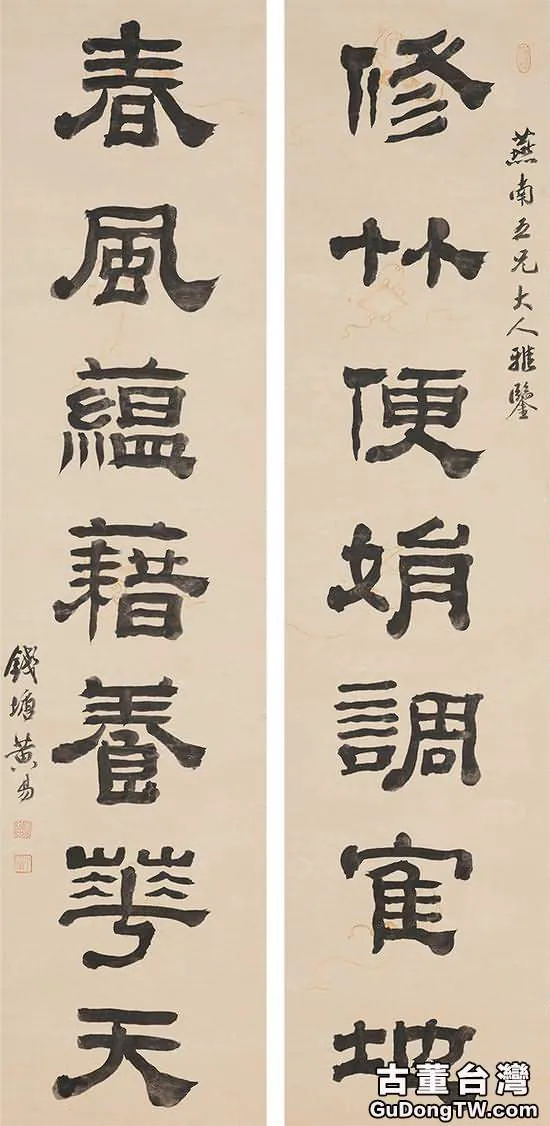 燕南五兄大人雅鑒
修竹便娟調寉地
春風藴藉養華天
錢塘黃易
古董台灣
GuDongTW.com